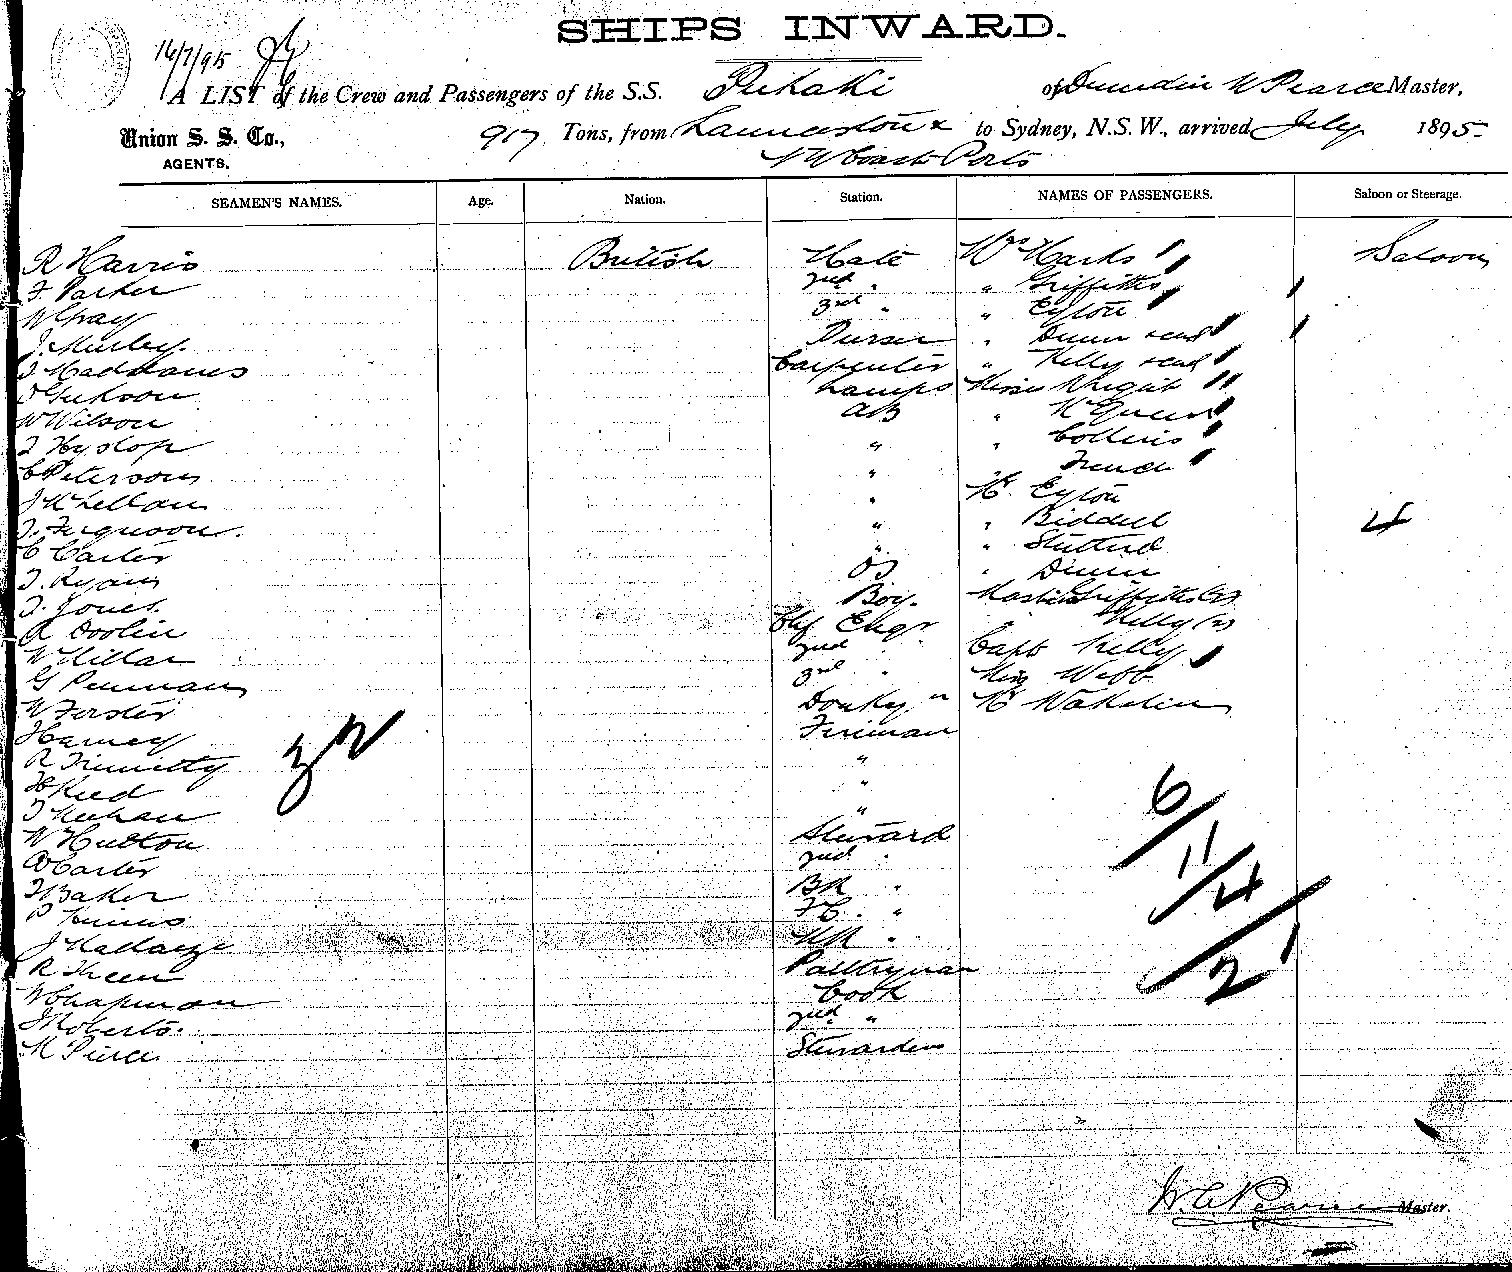 SHIPS INWARD.
16/7/95
A LIST of the Crew and Passengers of the S.S. Pukaki of Dunedin W Pearce Master,
Union S. S. Co., 917 Tons, from Launceston & to Sydney, N.S.W., arrived July 1895
AGENTS. N W Coast Ports
SEAMEN'S NAMES. Age. Nation. Station. NAMES OF PASSENGERS. Saloon or Steerage.
R Harris British Mate Mrs Marks Saloon
F. Parker 2nd " " Griffiths
W Gray 3rd " " Eyton
J. Murley Purser " Dunn
Carpenter " Kelly
Lamps Misses Wright
W Wilson AB "
J Hyslop " " Collins
C Peterson " French
J McLellan " Mr. Eyton
J. Ferguson " " Biddell 4
C Carter " " Stutterd
J. Ryan OS " Dunn
J. Jones Boy. Master Griffiths (2)
R Doolin Chf Engr " Kelly (2)
W Millar 2nd " Capt Kelly
G Penman 3rd " Miss Webb
W Forster Donkey " Mr Wakelin
Harvey Fireman
32
R "
H Reed " 6
J Meehan "
W Hutton Steward
Carter 2nd " 11
J Baker BR " 4
P FC. "
J MR " 1
R Pantryman 2
W Chapman Cook
J Roberts. 2nd "
M Pierce Stewardess
W. C. Pearce Master.